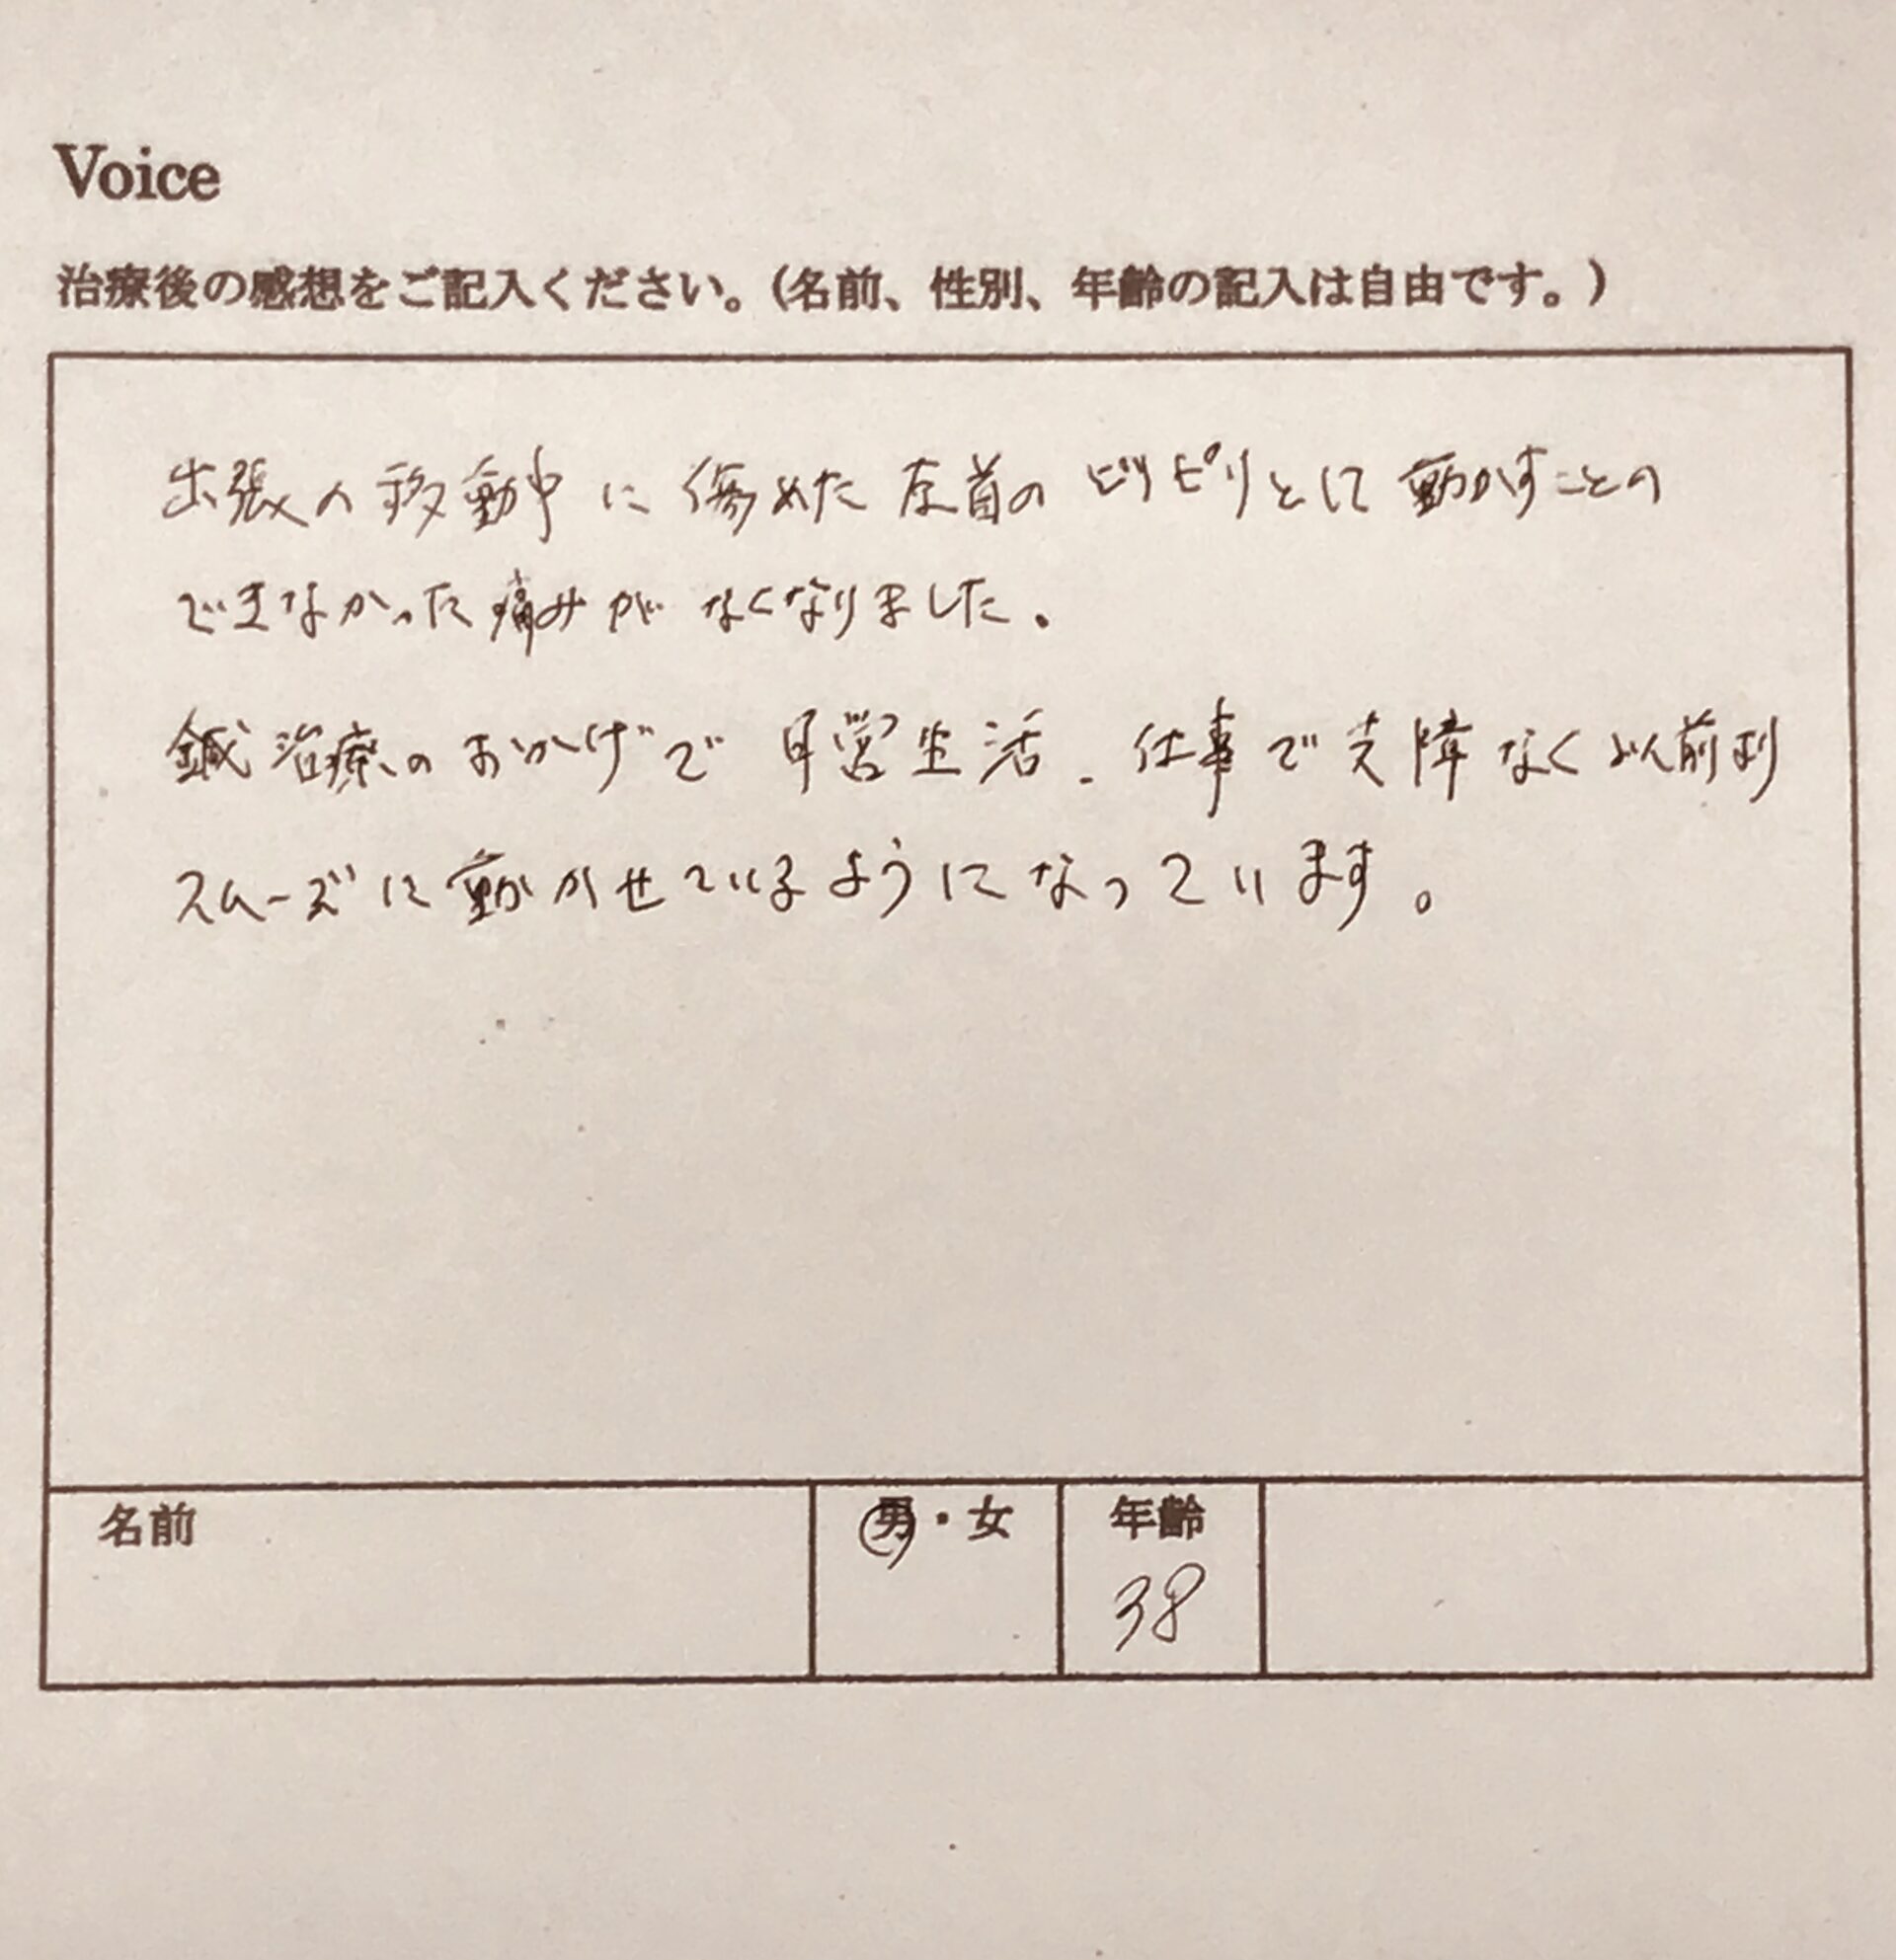 Voice
治療後の感想をご記入ください。(名前、性別、年齢の記入は自由です。)
出張の移動中に傷めた左首のピリピリとして動かすことの
できなかった痛みがなくなりました。
鍼治療のおかげで日営生活、仕事で支障なく以前より
スムーズに動かせているようになっています。
名前
男・女
年齢
38